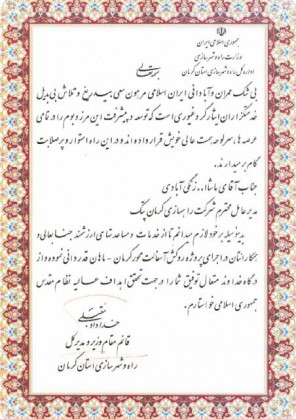 جمهوری اسلامی ایران
وزارت راه و شهرسازی
اداره کل راه و شهرسازی استان کرمان
بسمه تعالی
بی شک عمران و آبادانی ایران اسلامی مرهون سعی بیدریغ و تلاش بی بدیل
خدمتگزاران ایثارگر و غیوری است که توسعه و پیشرفت این مرز و بوم را در تمامی
عرصه ها، سرلوحه همت عالی خویش قرار داده اند و در این راه استوار و پرصلابت
گام برمیدارند.
جناب آقای ماشاا... زنگی آبادی
مدیر عامل محترم شرکت راهسازی کرمان جگ
بدینوسیله بر خود لازم میدانم تا از خدمات و مساعدتهای ارزشمند جنابعالی و
همکارانتان در اجرای پروژه روکش آسفالت محور کرمان - ماهان قدردانی نموده و از
درگاه خداوند متعال توفیق شما را در جهت تحقق اهداف عالیه نظام مقدس
جمهوری اسلامی خواستارم.
خداداد
قائم مقام وزیر و مدیرکل
راه و شهرسازی استان کرمان